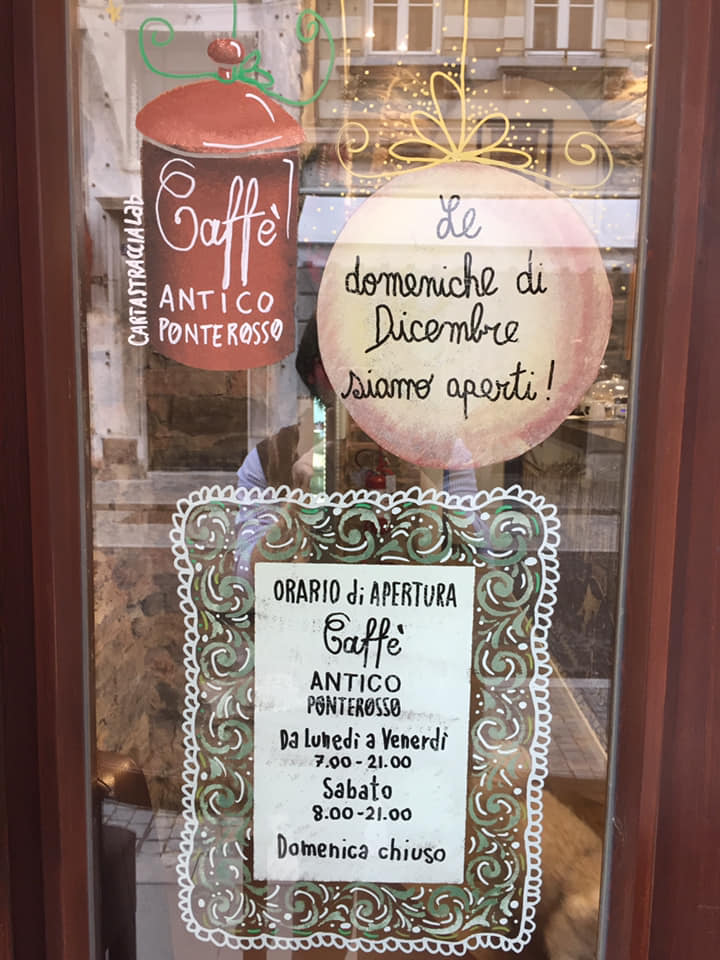 Caffè
ANTICO
PONTEROSSO
CARTASTRACCIALab
Le
domeniche di
Dicembre
siamo aperti!
ORARIO di APERTURA
Caffè
ANTICO
PONTEROSSO
Da Lunedì a Venerdì
7.00-21.00
Sabato
8.00-21.00
Domenica chiuso